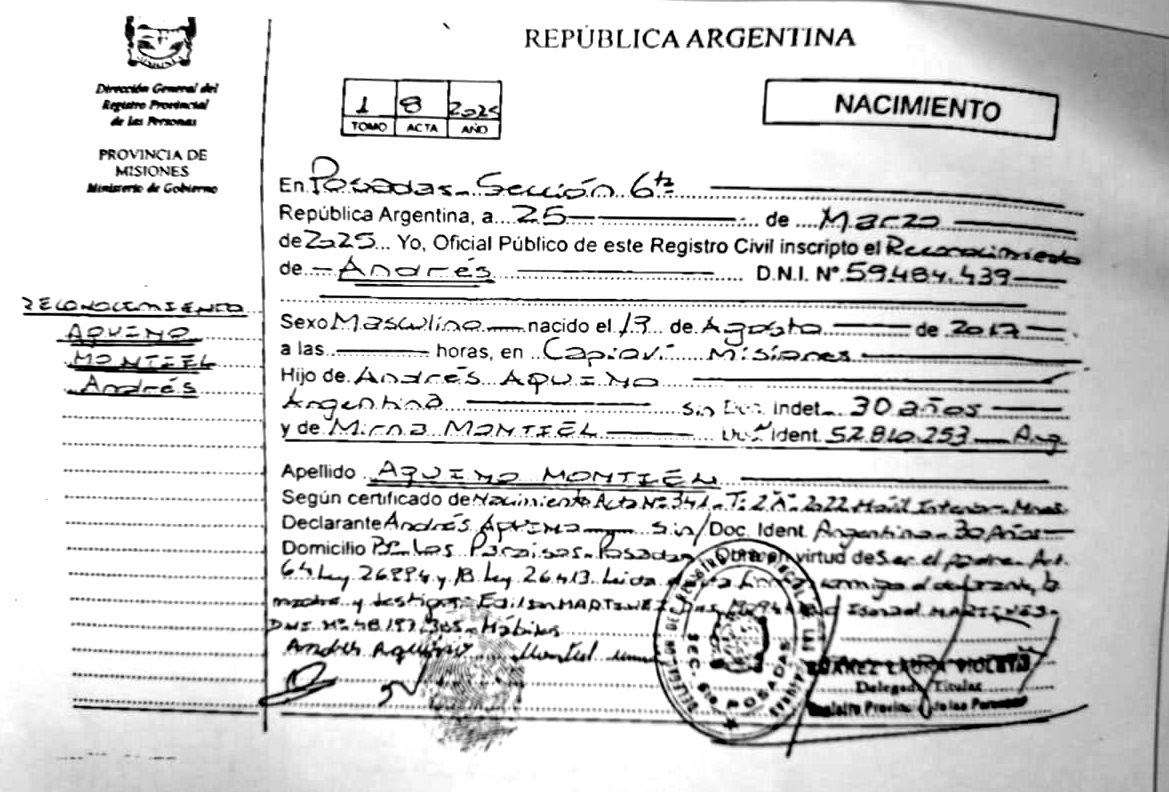 REPÚBLICA ARGENTINA
Dirección General del
Registro Provincial
de las Personas
PROVINCIA DE
MISIONES
Ministerio de Gobierno
1 8 2025
TOMO ACTA AÑO
NACIMIENTO
En Posadas - Sección 6ta
República Argentina, a 25 de Marzo
de 2025 Yo, Oficial Público de este Registro Civil inscripto el Reconocimiento
de Andrés D.N.I. Nº 59.484.439
RECONOCIMIENTO
AQUINO
MONTIEL
Andrés
Sexo Masculino nacido el de Agosto de 2017
a las horas, en Capioví Misiones
Hijo de Andrés AQUINO
Argentina sin Doc. Indet. 30 años
y de Mirna MONTIEL Doc. Ident. 52.810.253 Arg
Apellido AQUINO MONTIEL
Según certificado de Nacimiento Acta Nº 341 - T: 2"A" - 2022
Declarante Andrés AQUINO sin/Doc. Ident. Argentina - 30 Años
Domicilio Bº Los Paraisos - Posadas Obra en virtud de Ser el padre - Art.
64 Ley 26.994 y 18 Ley 26.413. Leida
madre y testigos: MARTINEZ Ismael MARTINES -
DNI Nº Hábiles
Andres Aquino Montiel
SEC. 6ta POSADAS
LAURA VIOLETA
Delegada Titular
Registro Provincial de las Personas